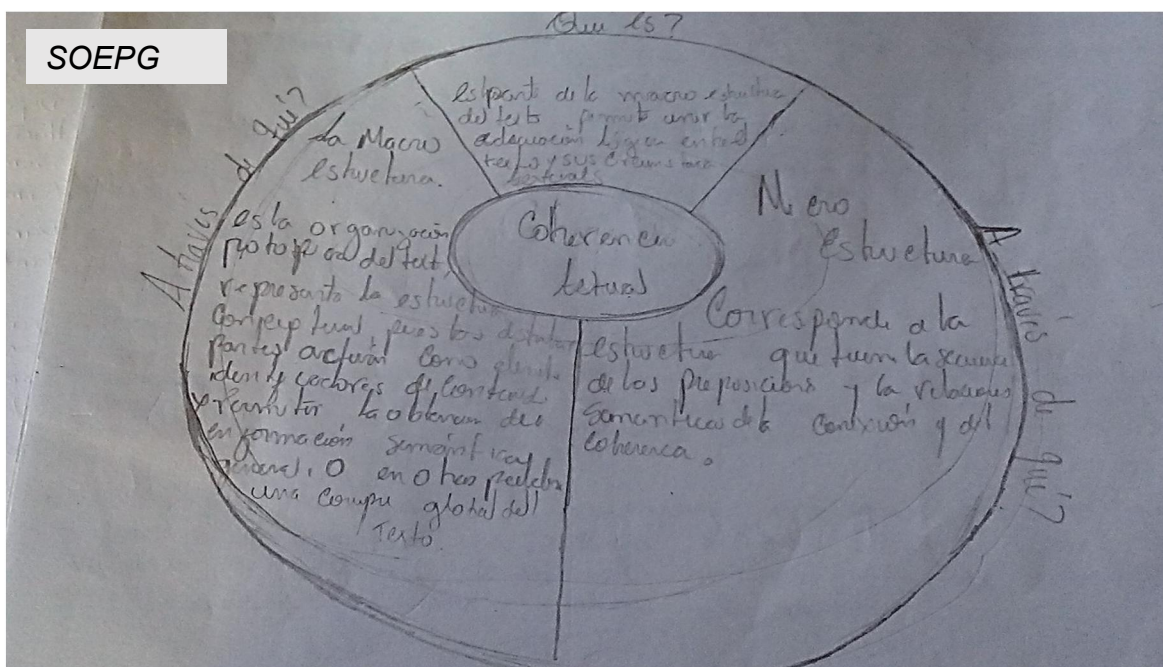 SOEPG
Que es?
es parte de la macro estructura
del texto permite unir la
adecuación lógica entre el
texto y sus circunstan
textuals
Coherencia
textual
A través de qué?
La Macro
estructura.
es la organización
del text
representa la estructura
conceptual, pues los distintas
partes actúan como
de contenid
permitir la obtencion de
información semántica
general. O en otras palabra
una compre global del
Texto
A través de qué?
Micro
estructura
Corresponde a la
estructura que tienen la secuenc
de los preposicions y la relaciones
Semantica de la conexión y del
Coherenca.